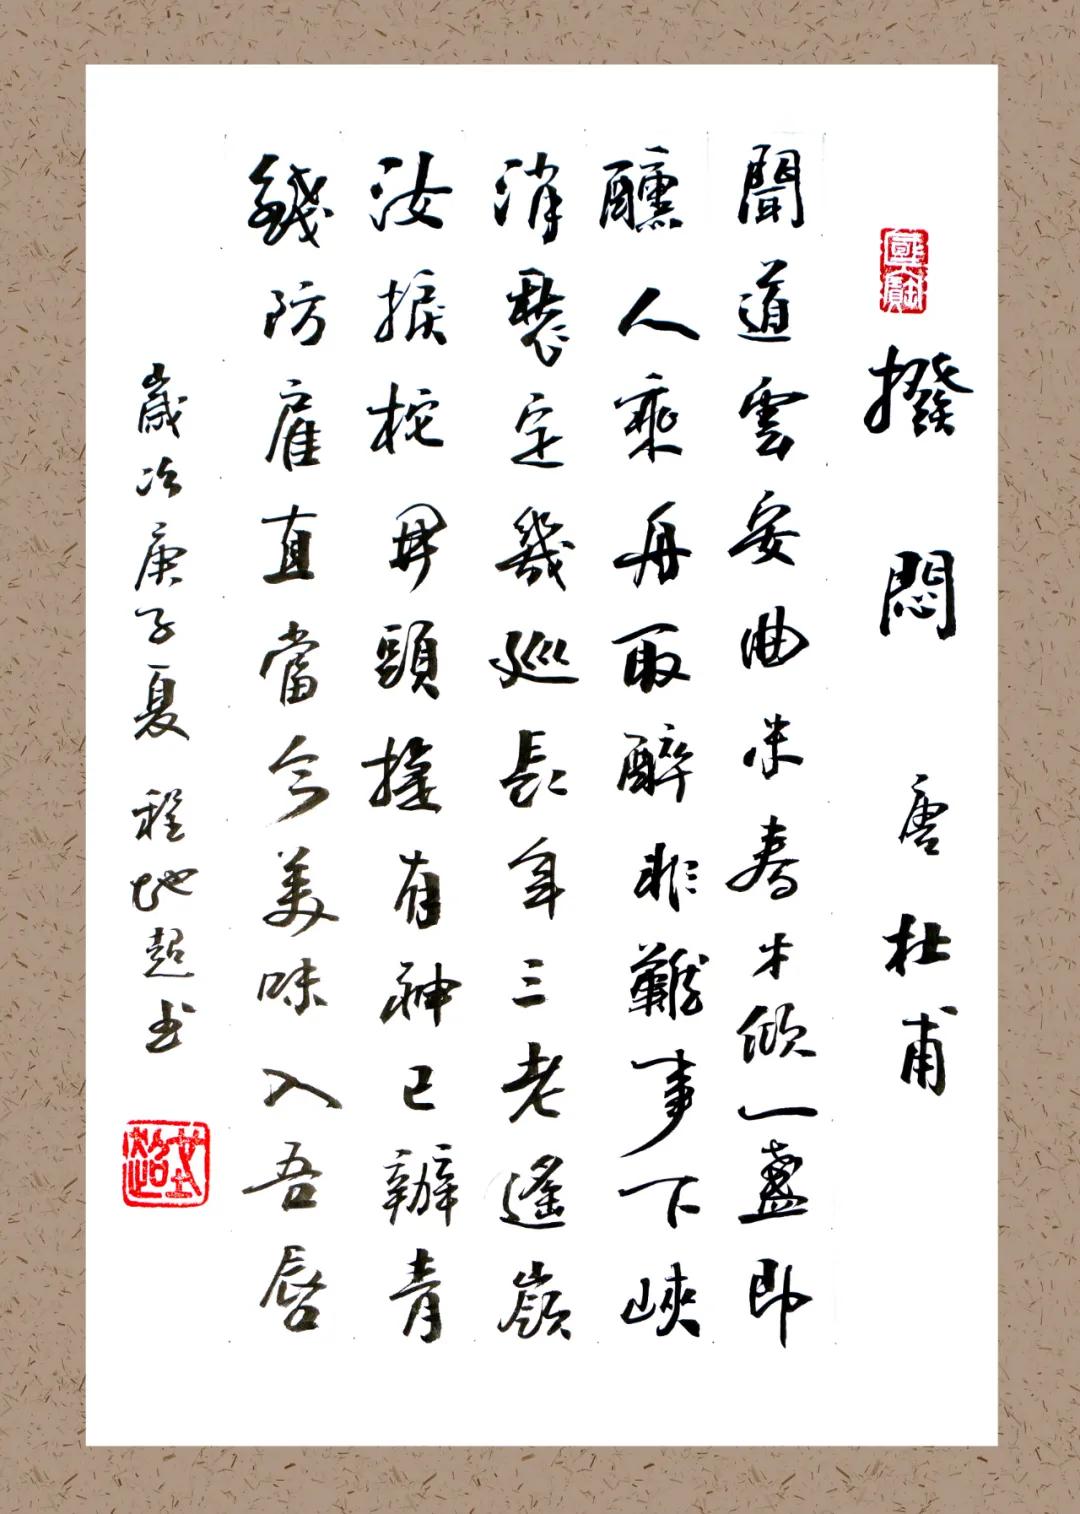 撥悶 唐 杜甫
聞道雲安曲米春才傾一盞即
醺人乘舟取醉非難事下峽
消愁定幾巡長年三老遙嶺
汝捩柁開頭捷有神已辦青
錢防雇直當令美味入吾唇
歲次庚子夏 程地超书